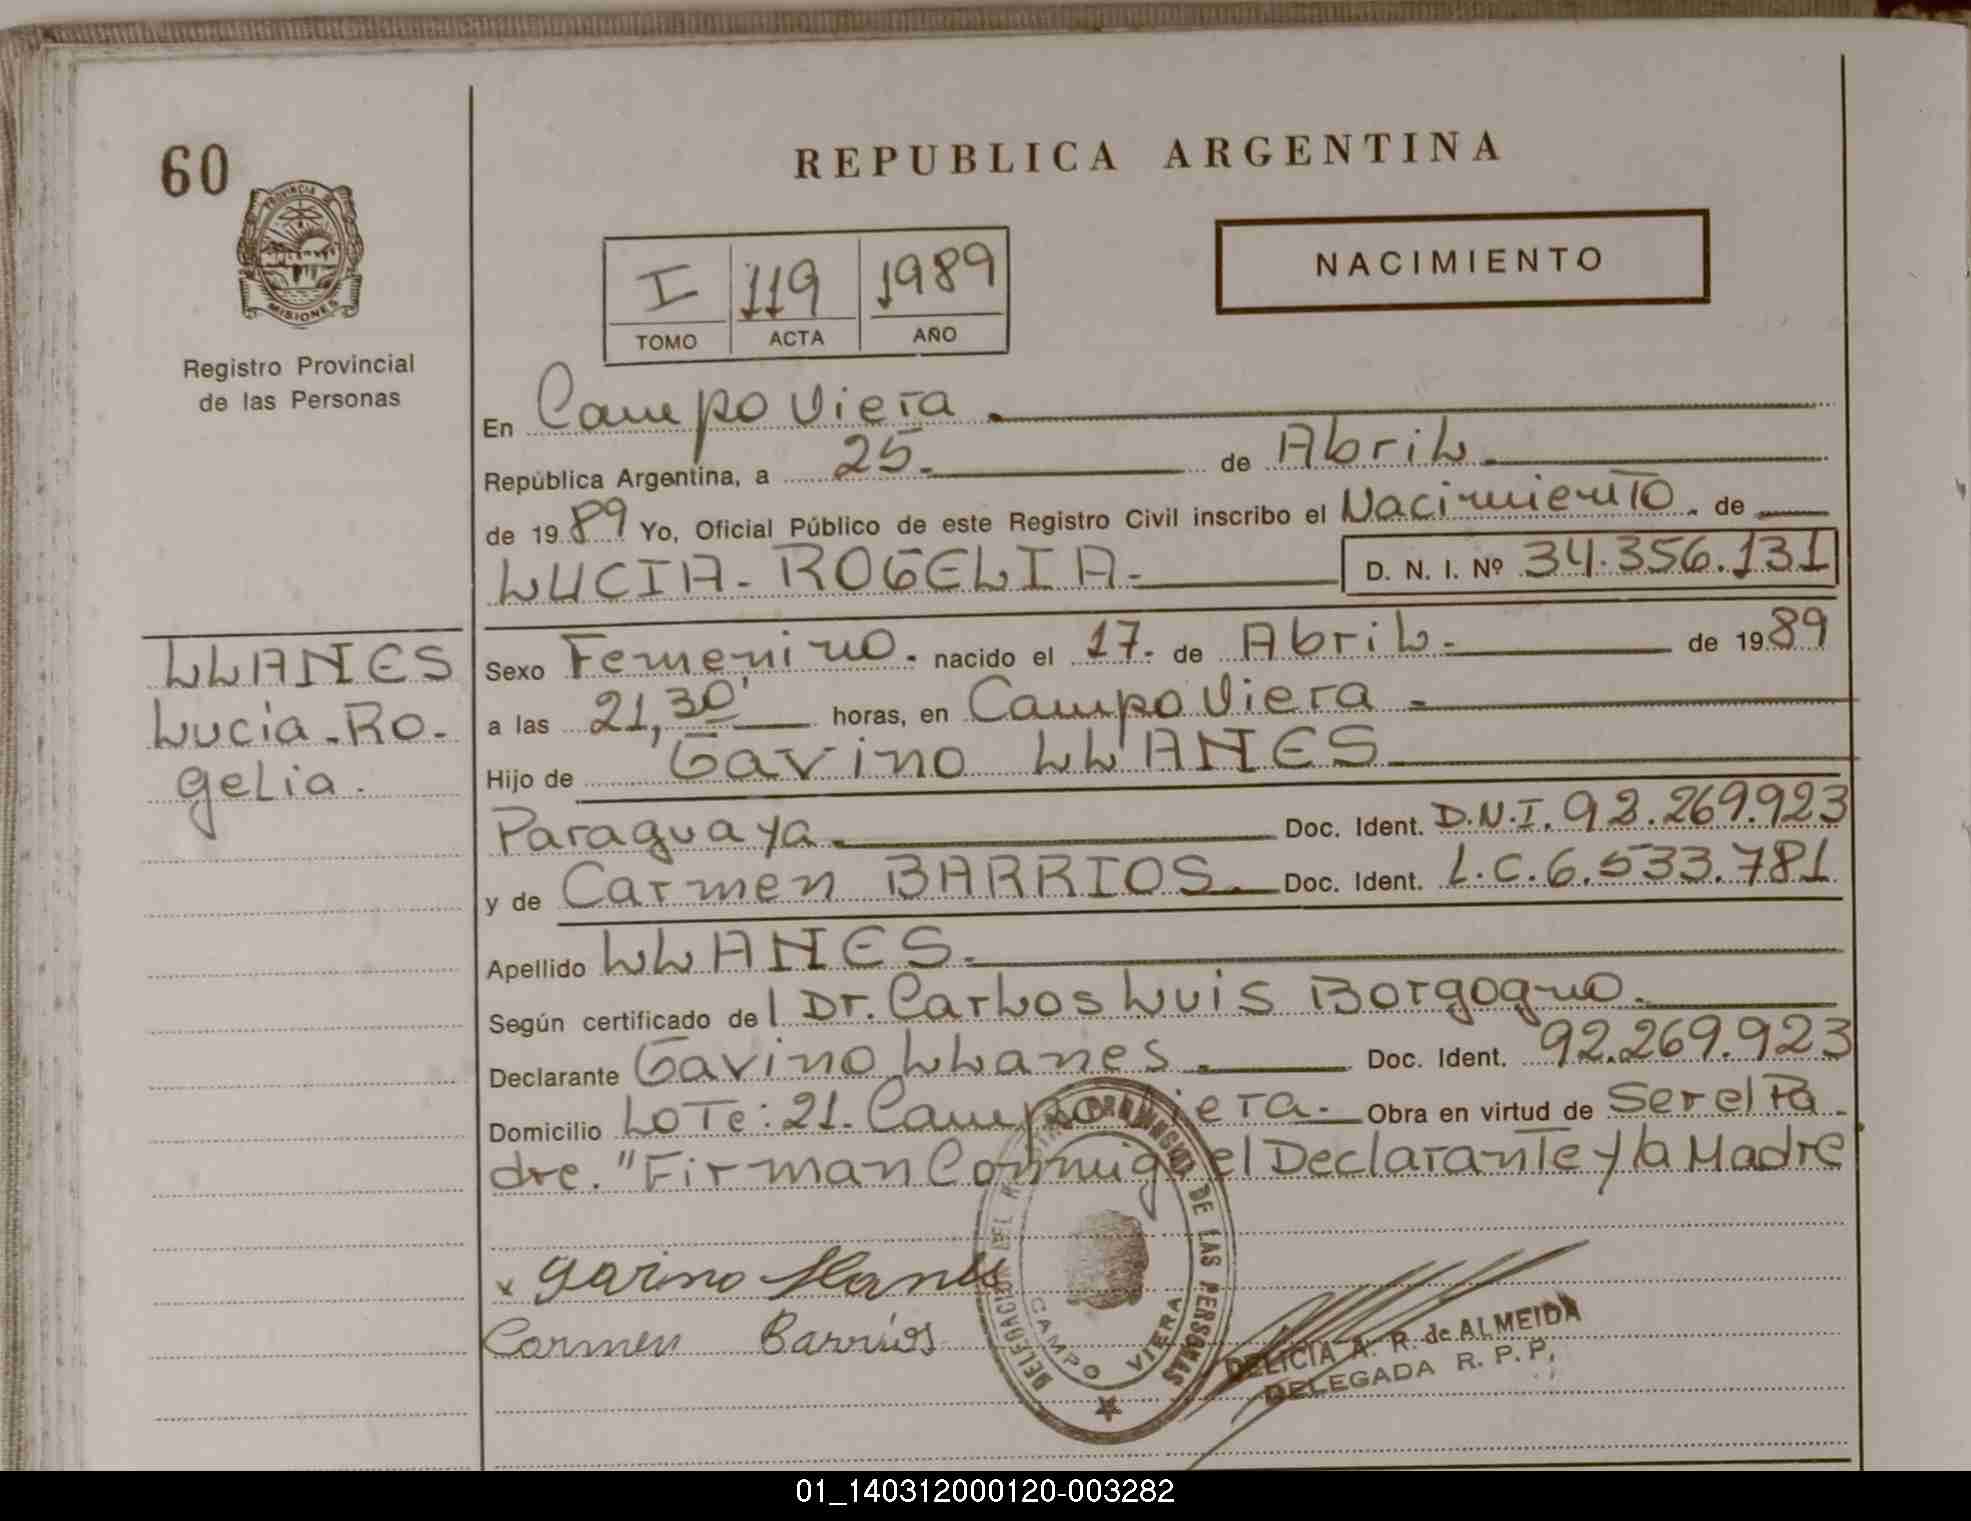 60
REPUBLICA ARGENTINA
PROVINCIA DE
MISIONES
NACIMIENTO
I 119 1989
TOMO ACTA AÑO
Registro Provincial
de las Personas
En Campo Viera.
República Argentina, a 25. de Abril.
de 1989 Yo, Oficial Público de este Registro Civil inscribo el Nacimiento. de
LUCIA-ROGELIA- D. N. I. Nº 34.356.131
LLANES
Lucia-Ro-
gelia.
Sexo Femenino. nacido el 17. de Abril. de 1989
a las 21,30' horas, en Campo Viera.
Hijo de Gavino LLANES
Paraguaya. Doc. Ident. D.N.I. 92.269.923
y de Carmen BARRIOS. Doc. Ident. L.C.6.533.781
Apellido LLANES.
Según certificado del Dr. Carlos Luis Borgogno.
Declarante Gavino LLanes. Doc. Ident. 92.269.923
Domicilio Lote: 21. Campo Viera. Obra en virtud de Ser el Pa-
dre. "Firman Conmigo el Declarante y la Madre
x Gavino Llanes
Carmen Barrios
DELEGACION DEL REGISTRO PROVINCIAL DE LAS PERSONAS
CAMPO VIERA
DELICIA A. R. de ALMEIDA
DELEGADA R. P. P.
01_140312000120-003282